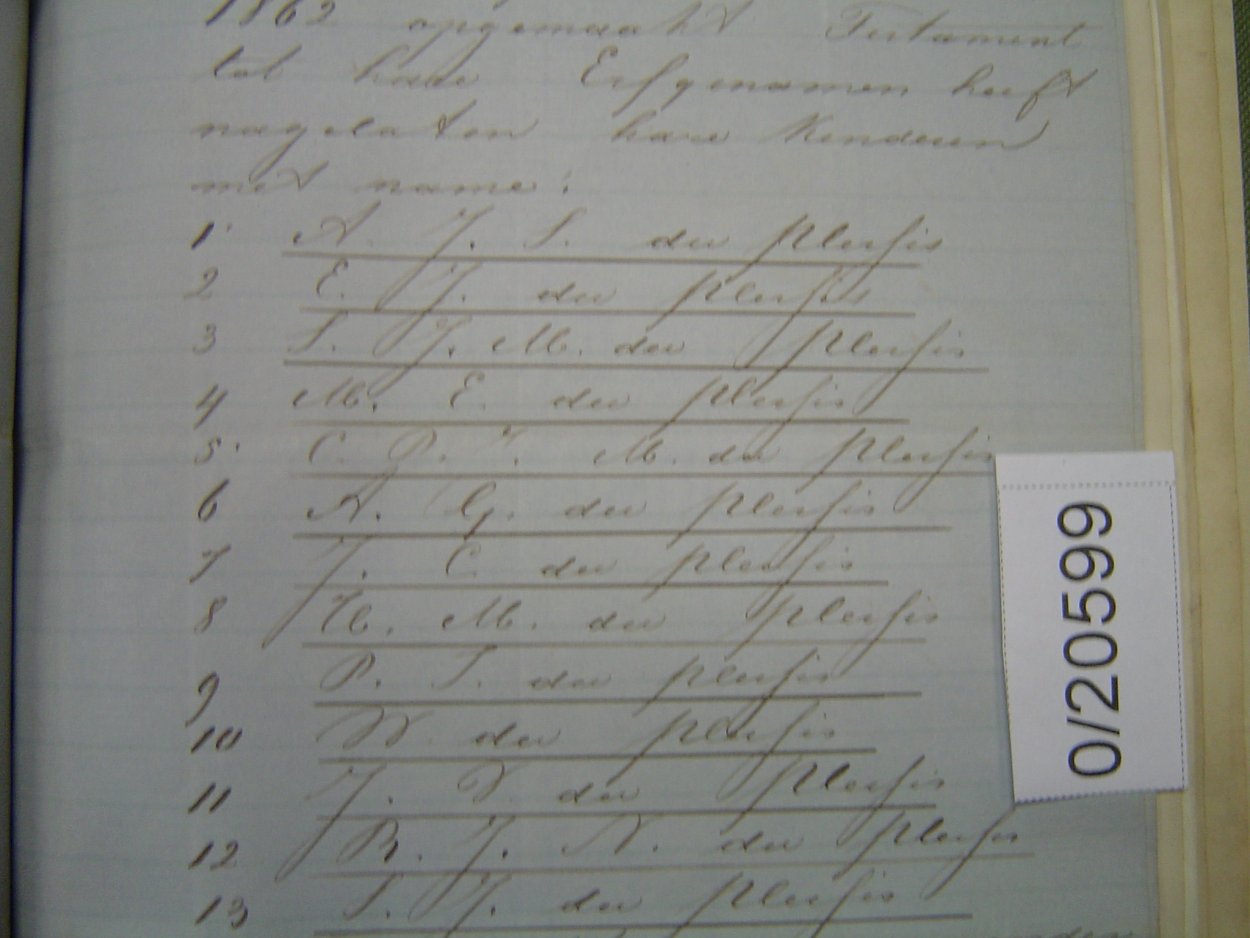 1862 opgemaakt Testament
tot hare Erfgenamen heeft
nagelaten hare Kenderen
met name:
1 A. J. S. du Plessis
2 E. J. du Plessis
3 S. J. M. du Plessis
4 M. E. du Plessis
5. C. P. J. M. du Plessis
6 A. G. du Plessis
7 J. C. du Plessis
8 H. M. du Plessis
9 P. S. du Plessis
10 W. du Plessis
11 J. S. du Plessis
12 R. J. N. du Plessis
13 S. J. du Plessis
0/20599